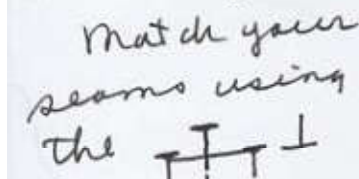 Match your
seams using
the